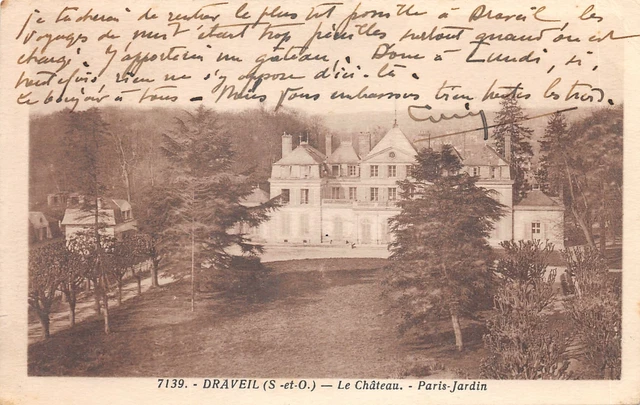 je tâcherai de rentrer le plus tôt possible à Draveil, les
voyages de nuit étant trop pénibles surtout quand on est
chargé. J'apporterai un gâteau. Donc à Lundi, si,
toutefois, rien ne s'y oppose d'ici-là.
le bonjour à tous - Nous vous embrassons bien toutes les trois.
7139. - DRAVEIL (S-et-O.) — Le Château. - Paris-Jardin